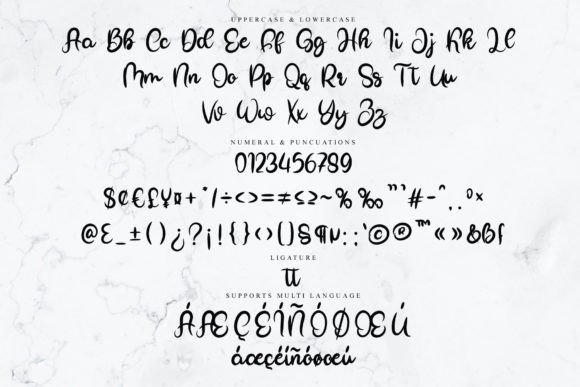 UPPERCASE & LOWERCASE
Aa Bb Cc Dd Ee Ff Gg Hh Ii Jj Kk Ll
Mm Nn Oo Pp Qq Rr Ss Tt Uu
Vv Ww Xx Yy Zz
NUMERAL & PUNCUATIONS
0123456789
$¢€£¥¤+*/÷<>=≠≤≥~%‰"'#-^
@&_±()¿?¡!{}‹›[]§¶µ::'©®™«»
LIGATURE
tt
SUPPORTS MULTI LANGUAGE
ÁÆÇÉÍÑÓØŒÚ
áæçéíñóøœú